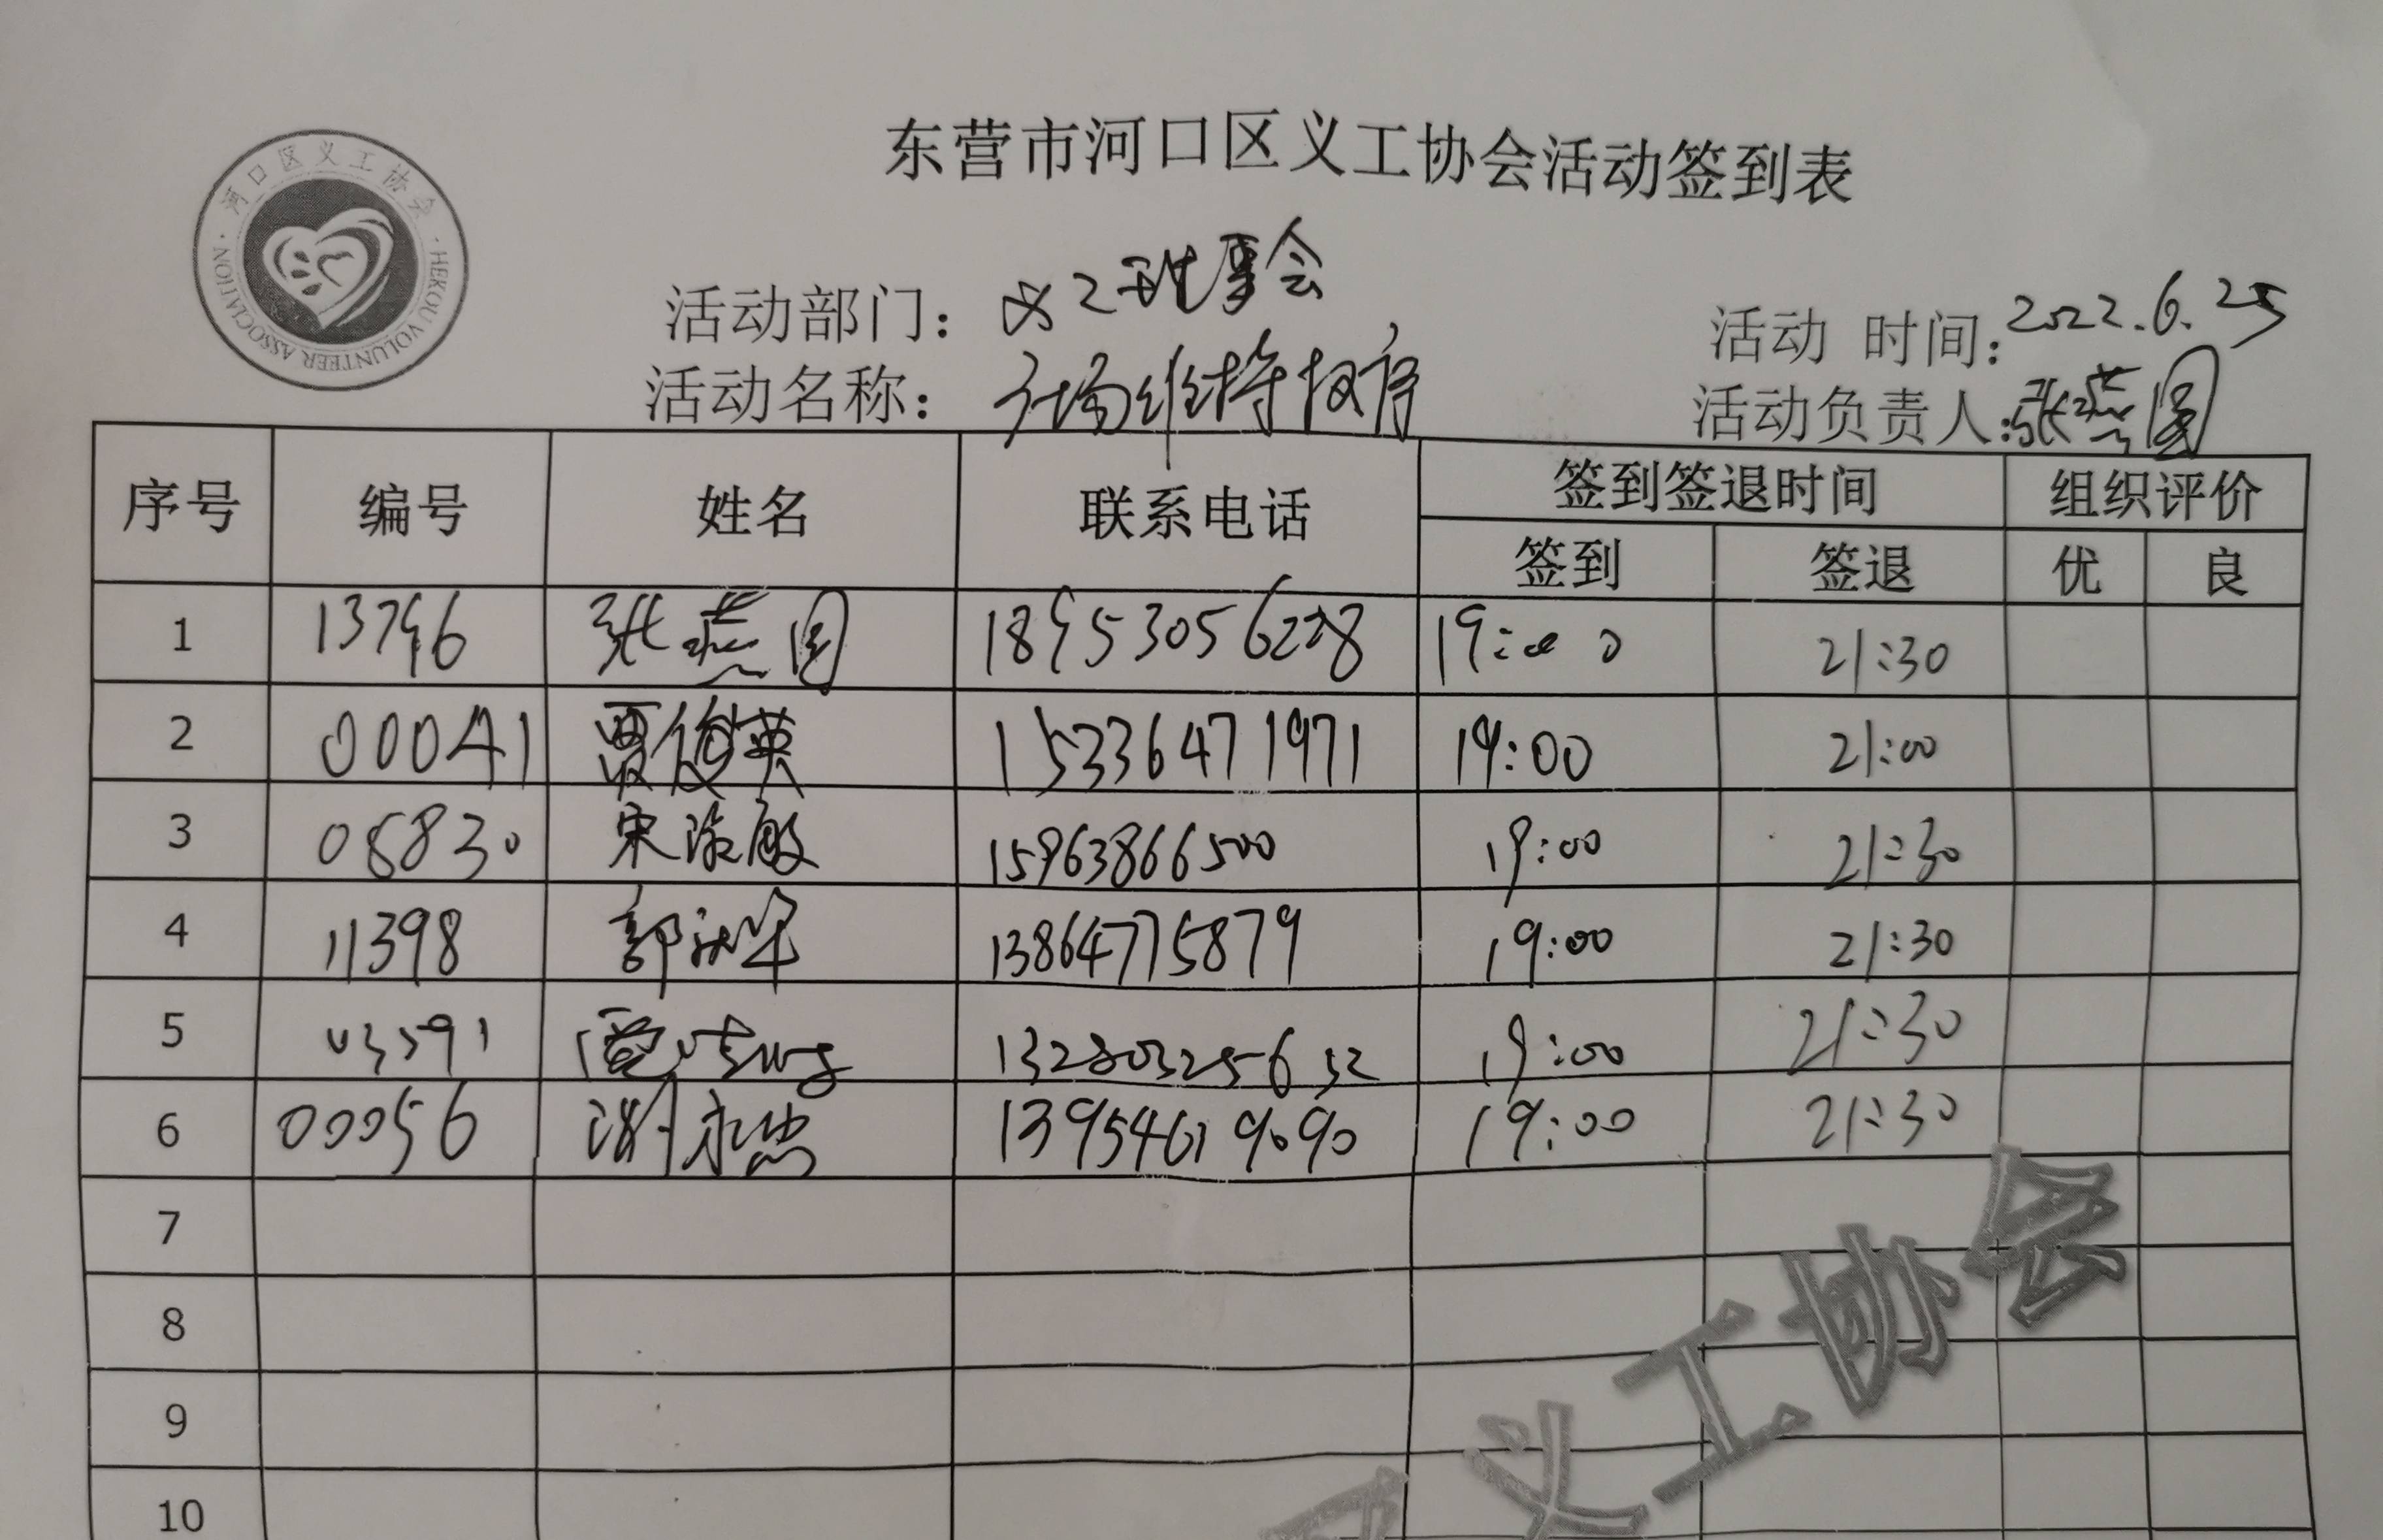 东营市河口区义工协会活动签到表
河口区义工协会
HEKOU VOLUNTEER ASSOCIATION
活动部门：义工理事会
活动 时间：2022.6.25
活动名称：广场维持秩序
活动负责人：张燕图
序号 编号 姓名 联系电话 签到签退时间 组织评价
签到 签退 优 良
1 13796 张燕图 18953056228 19:00 21:30
2 00041 贾俊英 15336471971 19:00 21:00
3 05830 宋 敏 15963866500 19:00 21:30
4 11398 郭 华 13864775879 19:00 21:30
5 03591 13280325632 19:00 21:30
6 00056 谢永 13954619090 19:00 21:30
7
8
9
10
义工协会